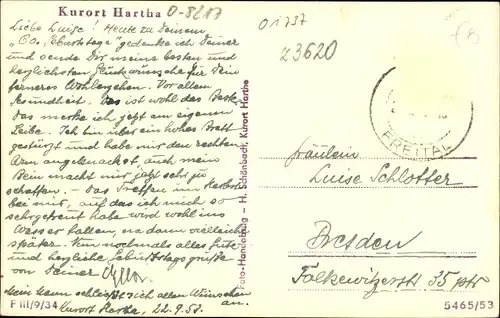 Kurort Hartha
O-8217
01737
23620
Liebe Luise! Heute zu Deinem
"60. Geburtstage" gedenke ich Deiner
und sende Dir meine besten und
herzlichsten Glückwünsche für Dein
ferneres Wohlergehen. Vor allem
Gesundheit. Das ist wohl das Beste.
Das merke ich jetzt am eigenen
Leibe. Ich bin über ein hohes Brett
gestürzt und habe mir den rechten
Arm angeknackst, auch mein
Bein macht mir jetzt sehr zu
schaffen. – Das Treffen im Herbst
bei mir, auf das ich mich so
sehr gefreut habe wird wohl ins
Wasser fallen, na dann vielleicht
später. Nun nochmals alles Gute
und herzliche Geburtstagsgrüße
von Deiner
Mein Mann schließt sich allen Wünschen
an.
Kurort Hartha, 22.9.53.
F III/9/34
Foto-Handabzug – H. Schönbach, Kurort Hartha
FREITAL
Fräulein
Luise Schlotter
Dresden
Falkewitzerstr. 35 ptr
5465/53